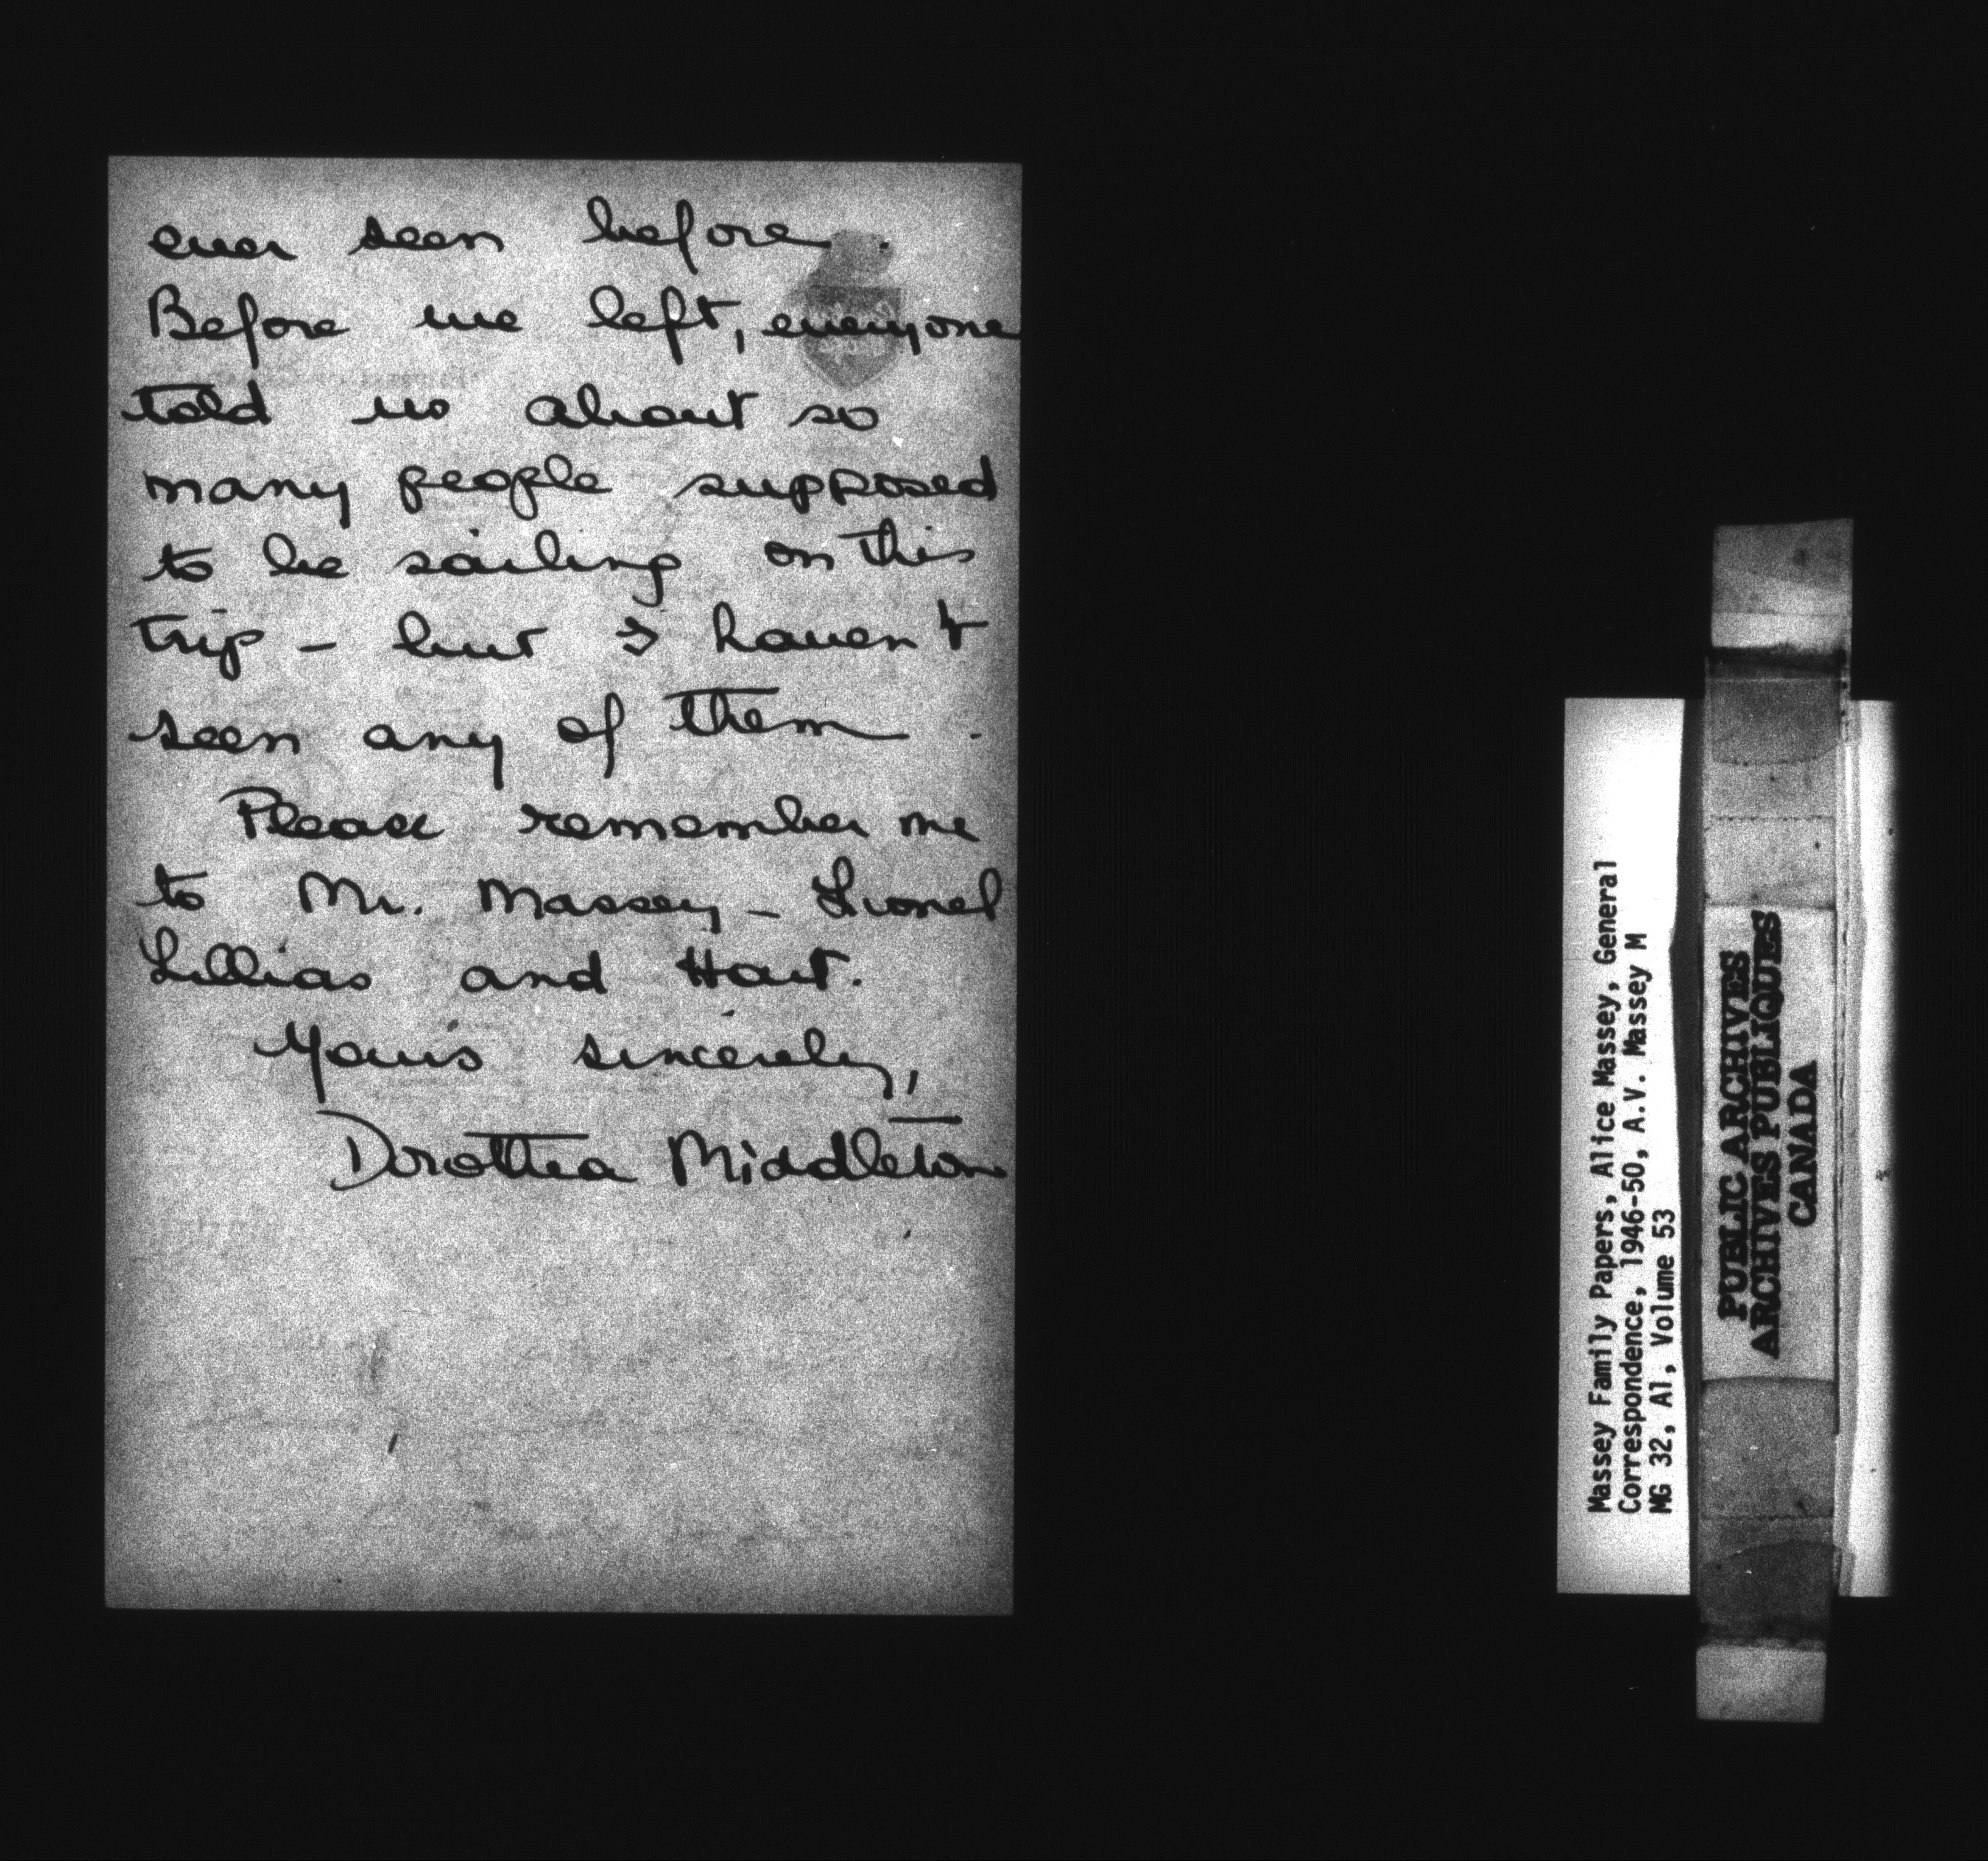 ever seen before
Before we left, everyone
told us about so
many people supposed
to be sailing on this
trip – but I haven't
seen any of them.
Please remember me
to Mr. Massey – Lionel
Lillias and Hart.
Yours sincerely,
Dorothea Middleton
Massey Family Papers, Alice Massey, General
Correspondence, 1946-50, A.V. Massey M
MG 32, A1, Volume 53
PUBLIC ARCHIVES
ARCHIVES PUBLIQUES
CANADA